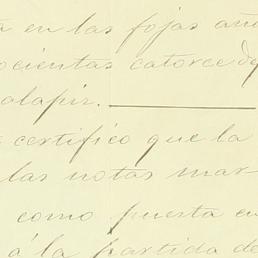 en las fojas
catorce de
certifico que la
las notas mar
como puesta en
á la partida de